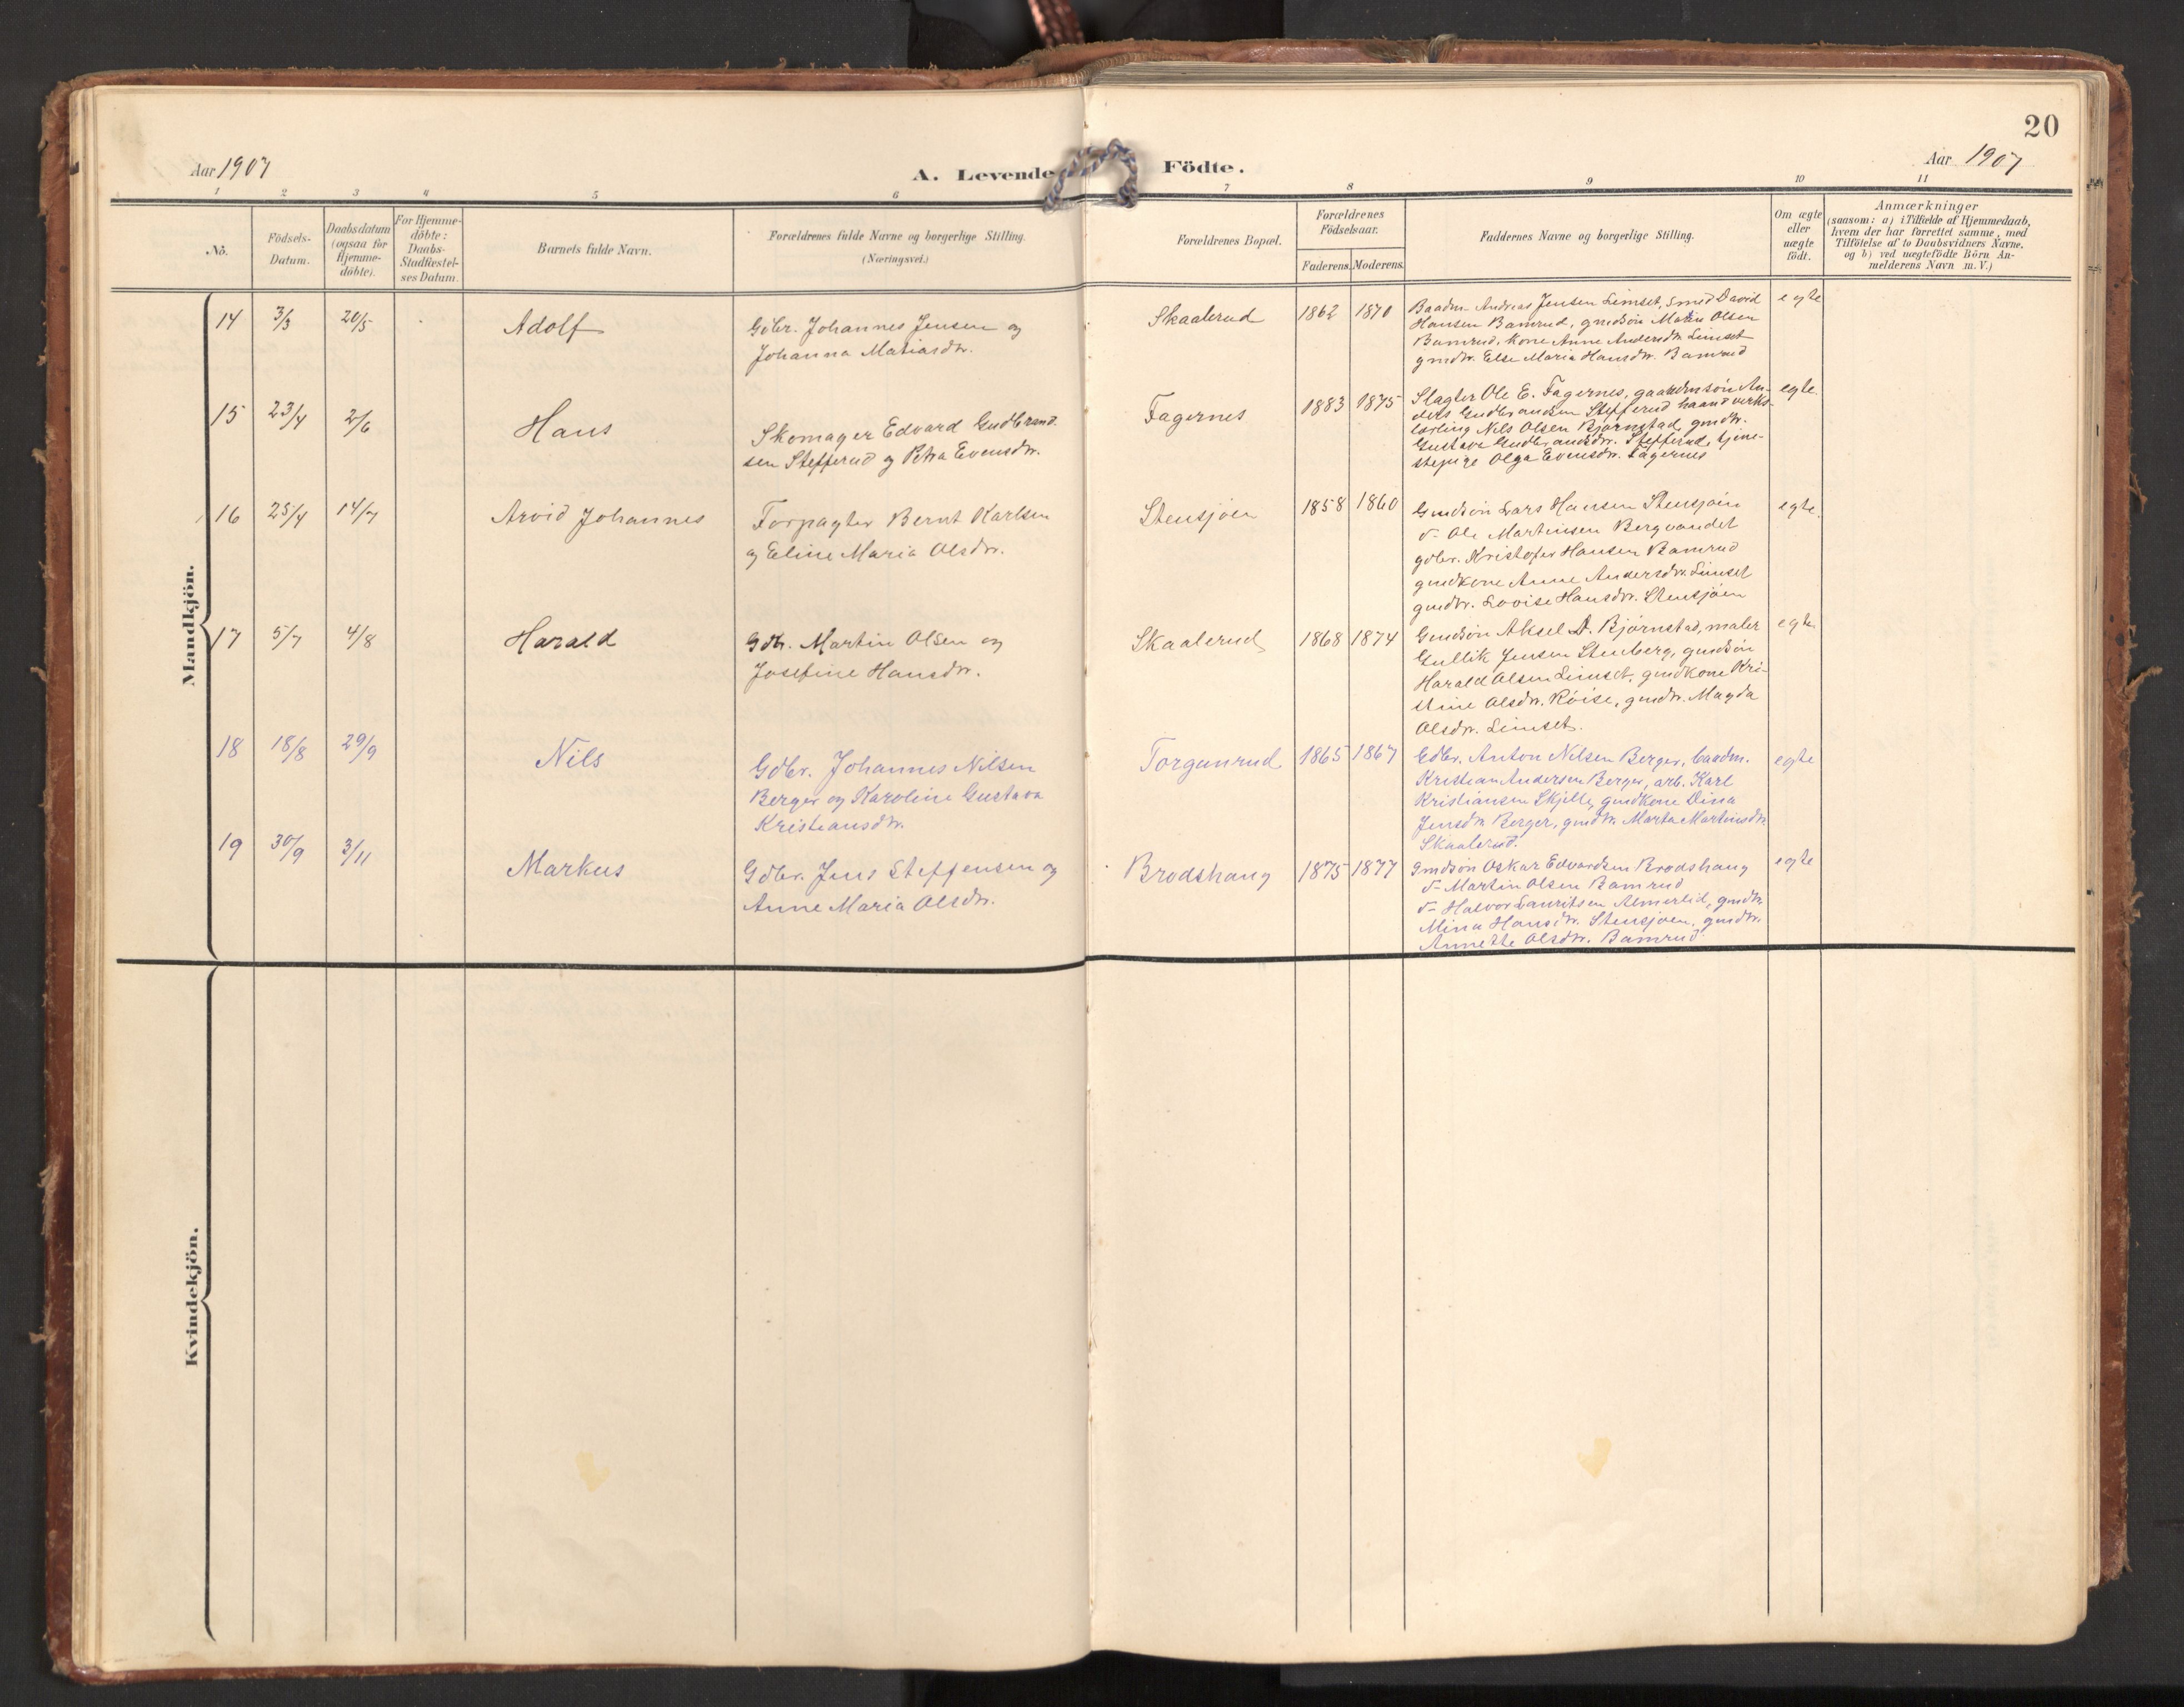 20
Aar 1907
A. Levende Födte.
Aar 1907
1 2 3 4 5 6 7 8 9 10 11
No.
Födsels-
Datum.
Daabsdatum
(ogsaa for
Hjemme-
döbte).
For Hjemme-
döbte:
Daabs-
Stadfæstel-
ses Datum.
Barnets fulde Navn.
Forældrenes fulde Navne og borgerlige Stilling.
(Næringsvei.)
Forældrenes Bopæl.
Forældrenes
Födselsaar.
Faderens. Moderens.
Faddernes Navne og borgerlige Stilling.
Om ægte
eller
uægte
födt.
Anmærkninger
(saasom: a) i Tilfælde af Hjemmedaab,
hvem der har forrettet samme, med
Tilföielse af to Daabsvidners Navne.
og b) ved uægtefödte Börn An-
melderens Navn m. V.)
Mandkjön.
14 3/3 20/5 Adolf
Gdbr. Johannes Jensen og
Johanna Matiasdtr.
Skaalerud 1862 1870
Baadm. Andreas Jensen Limset, smed David
Hansen Bamrud, gmdsön Olsen
Bamrud, kone Anne Andersdtr. Limset
gmdtr. Else Maria Hansdtr. Bamrud
egte
15 23/4 2/6 Hans
Skomager Edvard Gudbrand-
sen Stefferud og Petra Evensdtr.
Fagernes 1883 1875
Slagter Ole E. Fagernes, gaardmsön An-
ders Gudbrandsen Stefferud haandverks-
lærling Nils Olsen Bjørnstad, gmdtr.
Gustava Gudbrandsdtr. Stefferud, tjene-
stepige Olga Evensdtr. Fagernes
egte.
16 25/4 14/7 Arvid Johannes
Forpagter Bernt Karlsen
og Eline Maria Olsdtr.
Stensjøen 1858 1860
Gmdsön Lars Hansen Stensjøen
d– Ole Martinsen Bergvandet
gdbr. Kristofer Hansen Bamrud
gmdkone Anne Andersdtr. Limset
gmdtr. Lovise Hansdtr. Stensjøen
egte.
17 5/7 4/8 Harald
Gdbr. Martin Olsen og
Josefine Hansdtr.
Skaalerud 1868 1874
Gmdsön Aksel A. Bjørnstad, maler
Gullik Jensen Stenberg, gmdsön
Harald Olsen Limset, gmdkone Kri-
stine Olsdtr. Röise, gmdtr. Magda
Olsdtr. Limset.
egte.
18 18/8 29/9 Nils
Gdbr. Johannes Nilsen
Berger og Karoline Gustava
Kristiansdtr.
Torgunrud 1865 1867
Gdbr. Anton Nilsen Berger, baadm.
Kristian Andersen Berger, arb. Karl
Kristiansen Skjelle, gmdkone Dina
Jensdtr. Berger, gmdtr. Marta Martinsdtr.
Skaalerud.
egte
19 30/9 3/11 Markus
Gdbr. Jens Steffensen og
Anne Maria Olsdtr.
Brodshaug 1875 1877
Gmdsön Oskar Edvardsen Brodshaug
d– Martin Olsen Bamrud
d– Halvor Lauritsen Almerlid, gmdtr.
Mina Hansdtr. Stensjøen, gmdtr.
Annette Olsdtr. Bamrud
egte
Kvindekjön.